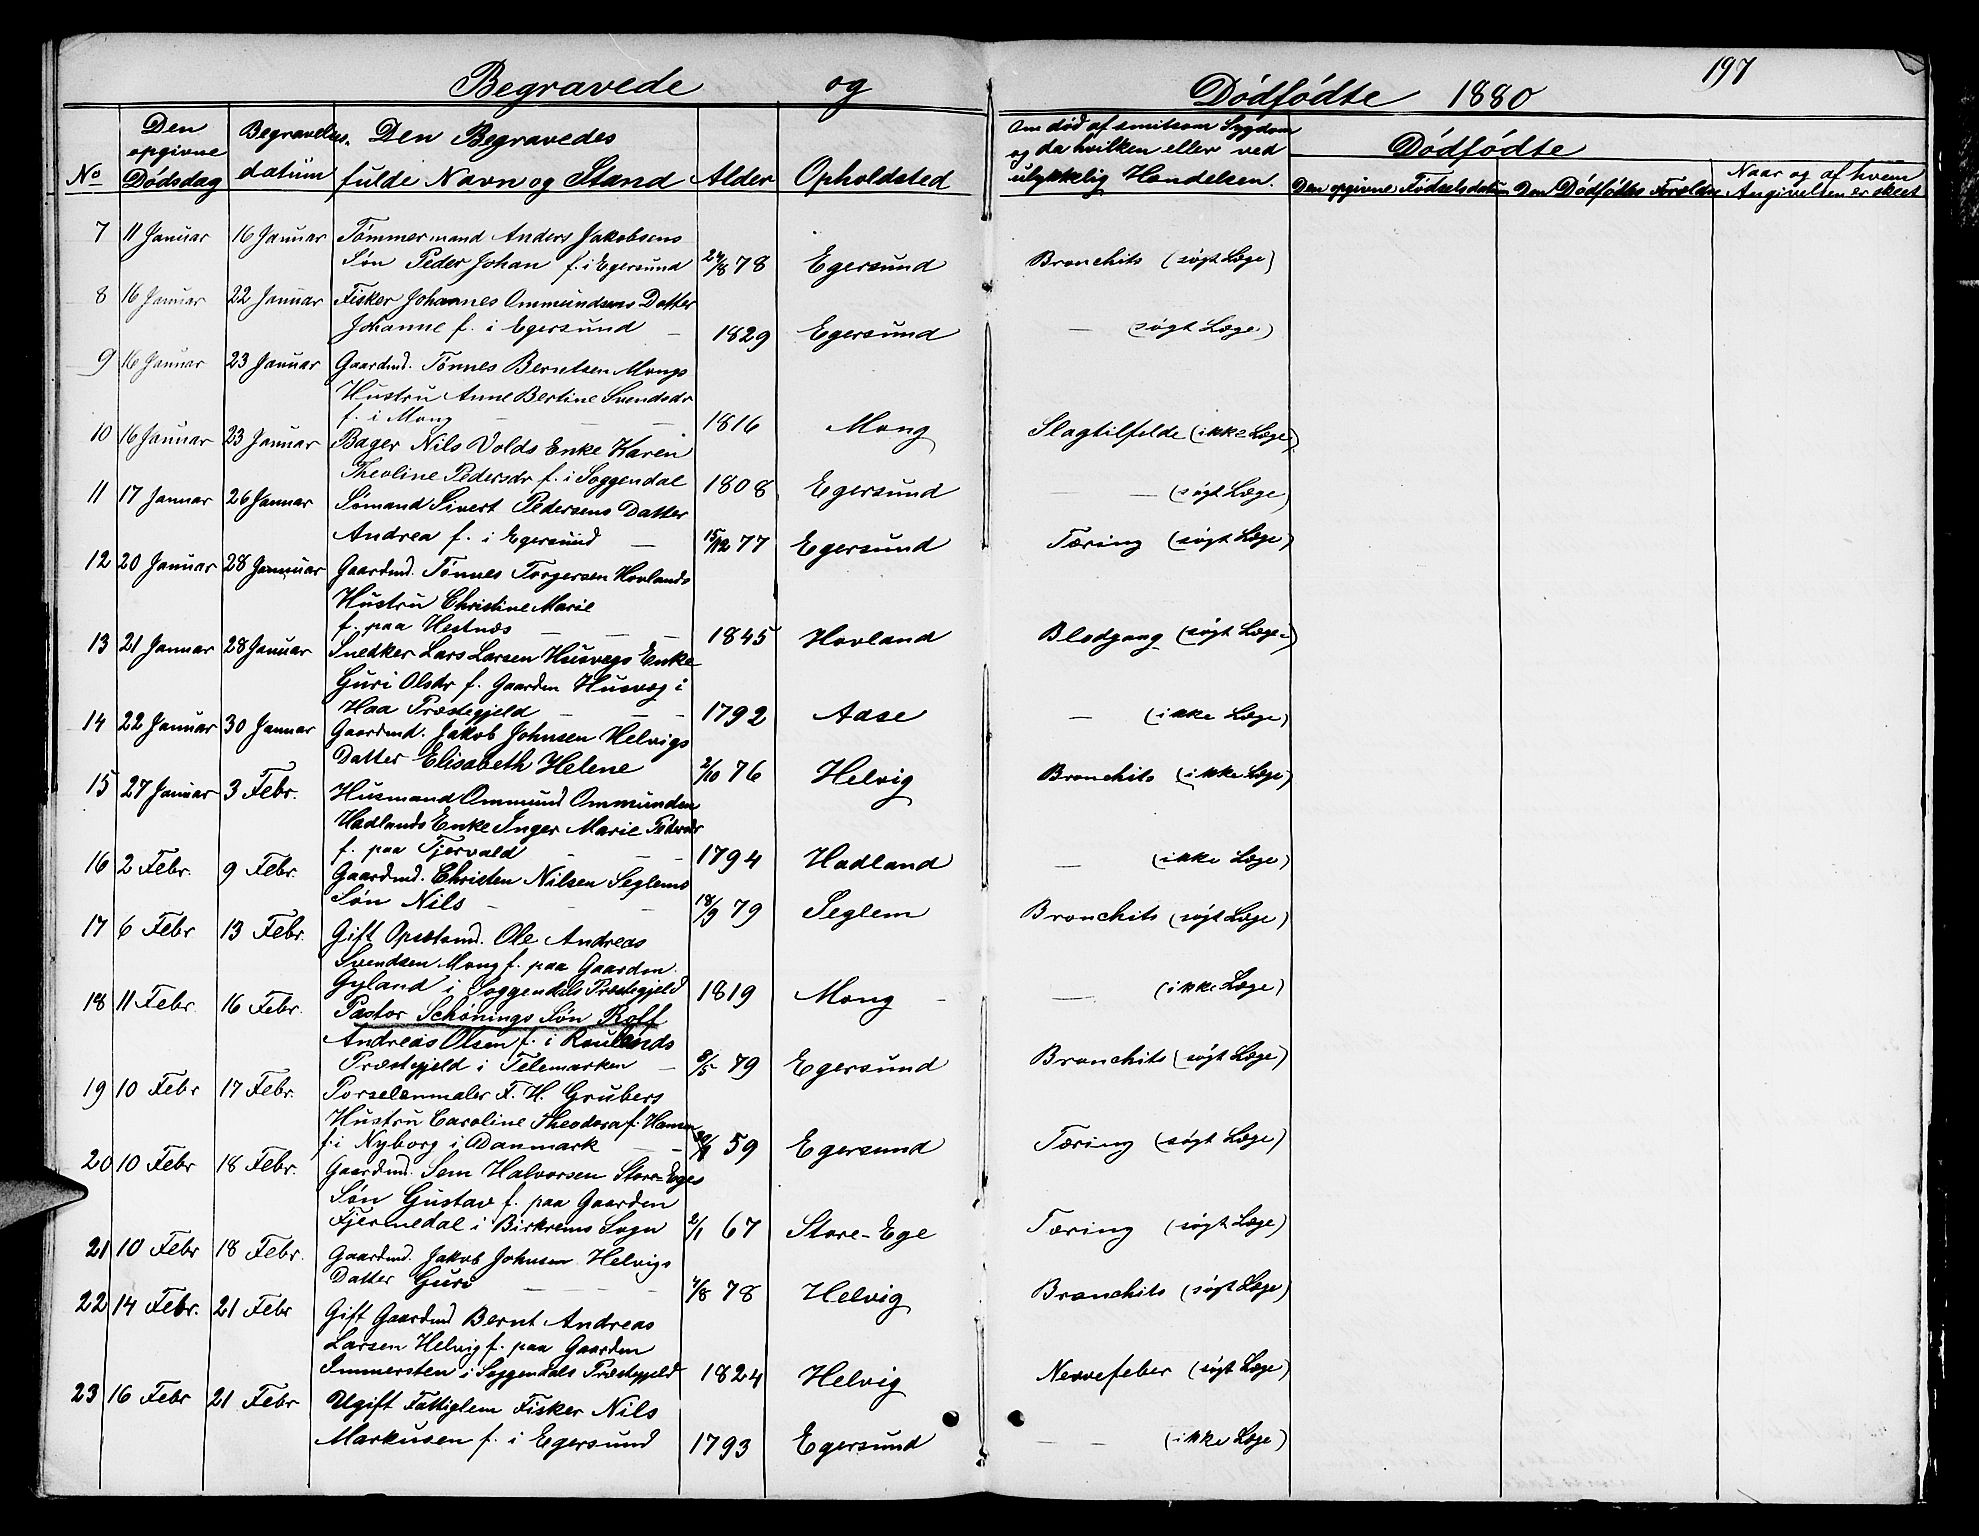 197
Begravede og Dødfødte 1880
No Den opgivne Dødsdag Begravelses datum Den Begravedes fulde Navn og Stand Alder Opholdsted Om død af smitsom Sygdom og da hvilken eller ved ulykkelig Hændelsen. Dødfødte Den opgivne Fødselsdatum Den Dødfødtes Forældre Naar og af hvem Angivelsen er skeet
7 11 Januar 16 Januar Tømmermand Anders Jakobsens
Søn Peder Johan f. i Egersund 24/8 78 Egersund Bronchits (søgt Læge)
8 16 Januar 22 Januar Fisker Johannes Ommundsens Datter
Johanne f. i Egersund — 1829 Egersund — (søgt Læge)
9 16 Januar 23 Januar Gaardmd. Tønnes Berntsen Mongs
Hustru Anne Bertine Svendsdr
f. i Mong — — 1816 Mong Slagtilfelde (ikke Læge)
10 16 Januar 23 Januar Bager Nils Volds Enke Karen
Theoline Pedersdr f. i Soggendal 1808 Egersund — — (søgt Læge)
11 17 Januar 26 Januar Sømand Sivert Pedersens Datter
Andrea f. i Egersund — 15/12 77 Egersund Tæring (søgt Læge)
12 20 Januar 28 Januar Gaardmd. Tønnes Torgersen Hovlands
Hustru Christine Marie
f. paa Hestnæs — — — 1845 Hovland Blodgang (søgt Læge)
13 21 Januar 28 Januar Snedker Lars Larsen Husvegs Enke
Guri Olsdr f. Gaarden Husveg i
Haa Præstegjeld — — — 1792 Aase — (ikke Læge)
14 22 Januar 30 Januar Gaardmd. Jakob Johnsen Helvigs
Datter Elisabeth Helene 2/10 76 Helvig Bronchits (ikke Læge)
15 27 Januar 3 Febr. Husmand Ommund Ommunden
Hadlands Enke Inger Marie Pedersdr
f. paa Tjervald — — — 1794 Hadland — (ikke Læge)
16 2 Febr. 9 Febr. Gaardmd. Christen Nilsen Seglems
Søn Nils — — — 18/9 79 Seglem Bronchits (søgt Læge)
17 6 Febr 13 Febr. Gift Opsetsmd. Ole Andreas
Svendsen Mong f. paa Gaarden
Gyland i Soggendals Præstegjeld 1819 Mong — — (ikke Læge)
18 11 Febr. 16 Febr. Pastor Schønings Søn Rolf
Andreas Olsen f. i Raulands
Præstegjeld i Telemarken — 8/5 79 Egersund Bronchits (søgt Læge)
19 10 Febr 17 Febr. Porselenmaler F. H. Grubers
Hustru Caroline Theodora f. Hansen
f. i Nyborg i Danmark — — 59 Egersund Tæring (søgt Læge)
20 10 Febr 18 Febr. Gaardmd. Sem Halvorsen Store-Eges
Søn Gustav f. paa Gaarden
Fjermedal i Birkrems Sogn 2/1 67 Store-Ege Tæring (søgt Læge)
21 10 Febr 18 Febr. Gaardmd. Jakob Johnsen Helvigs
Datter Guri — — — 4/8 78 Helvig Bronchits (søgt Læge)
22 14 Febr. 21 Febr Gift Gaardmd Bernt Andreas
Larsen Helvig f. paa Gaarden
Immersten i Soggendals Præstegjeld 1824 Helvig Nervefeber (søgt Læge)
23 16 Febr 21 Febr Ugift Fattiglem Fisker Nils
Markusen f. i Egersund 1793 Egersund — — (ikke Læge)